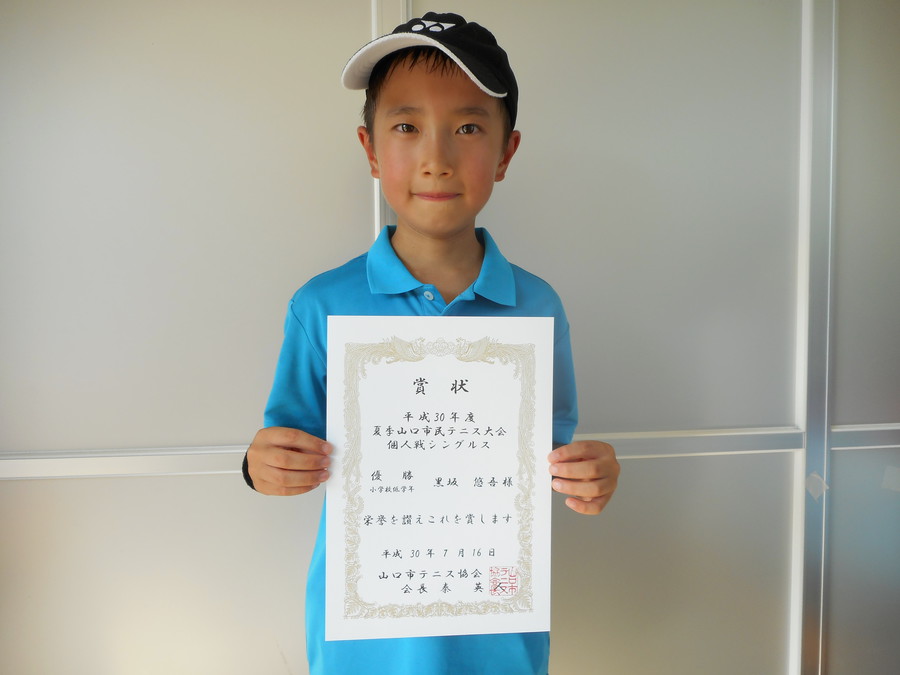 賞状
平成30年度
夏季山口市民テニス大会
個人戦シングルス
優勝
小学校低学年
黒坂 悠吾様
栄誉を讃えこれを賞します
平成 30 年 7 月 16 日
山口市テニス協会
会長 泰 英